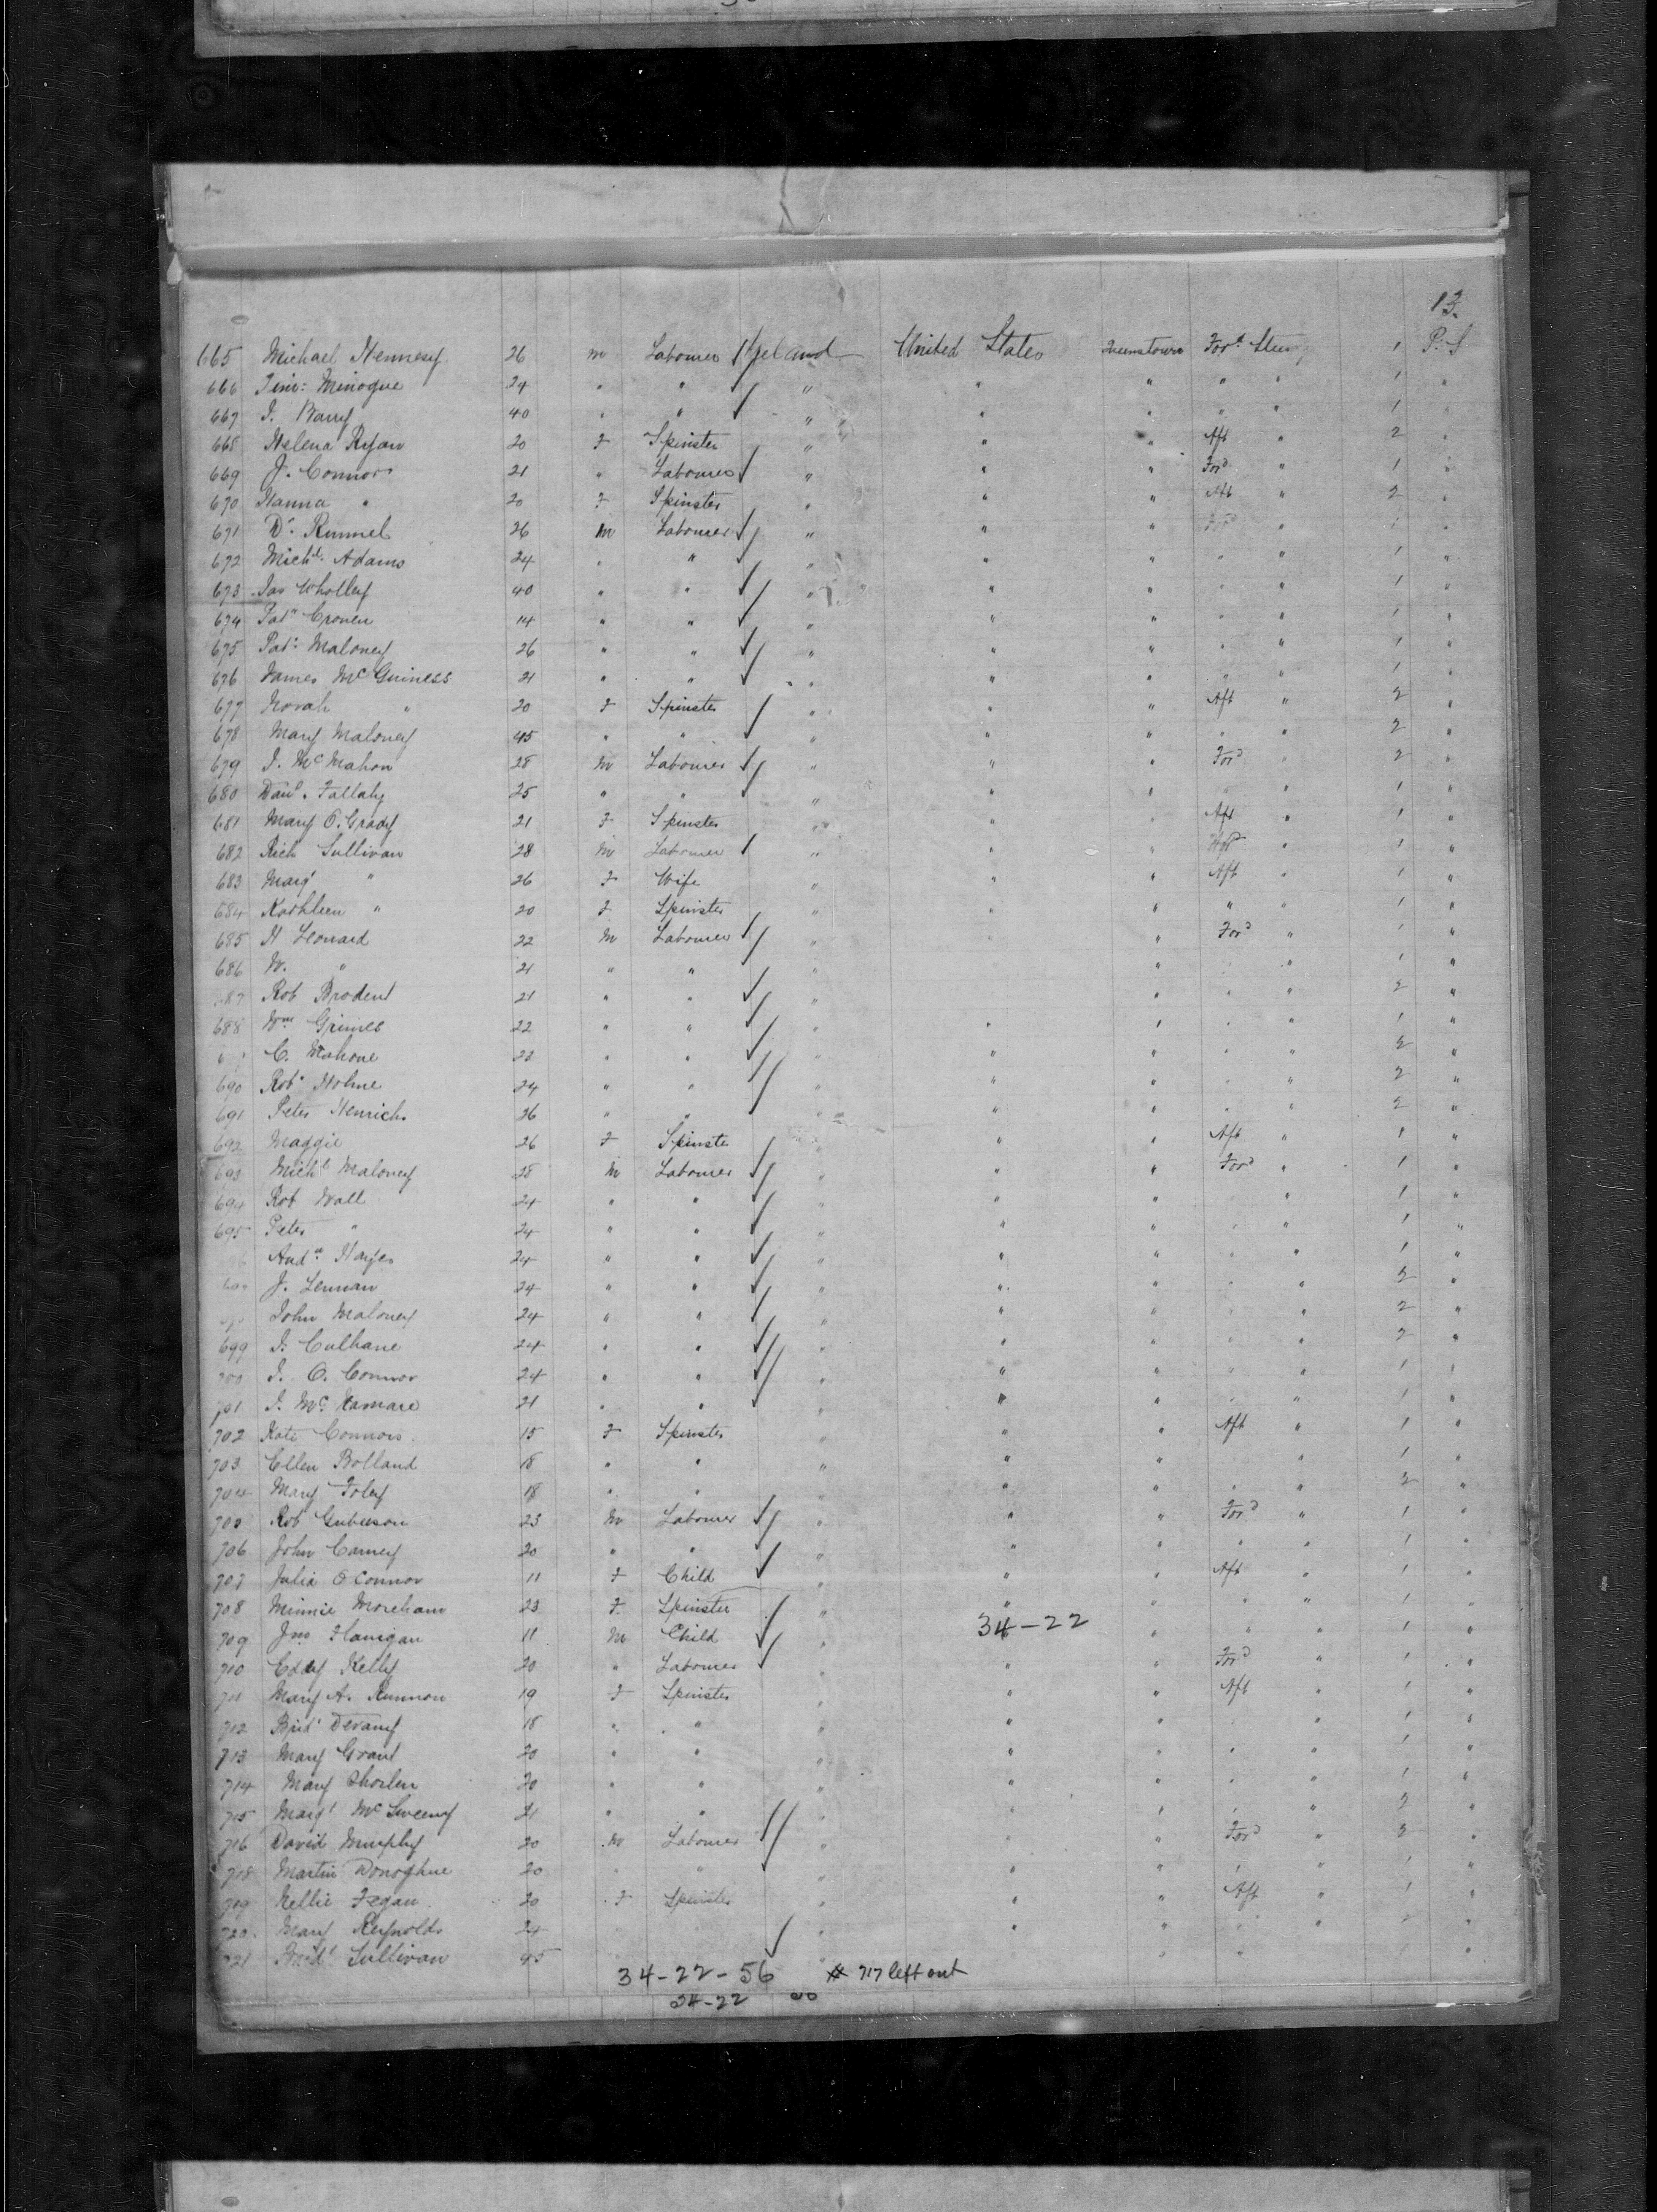 13.
665 Michael Hennesy 26 m Labourer Ireland United States Queenstown Ford Steer 1 P.S.
666 Tim: Minogue 24 " " " " " " " 1 "
667 J. Barry 40 " " " " " " " 1 "
668 Helena Ryan 20 F Spinster " " " Aft " 2 "
669 J. Connors 21 " Labourer " " " Ford " 1 "
670 Hanna " 20 F Spinster " " " Aft " 2 "
671 Rummel 26 m Labourer " " " Ford " 1 "
672 Michl. Adams 24 " " " " " " " 1 "
673 Jas Wholley 40 " " " " " " " 1 "
674 Patk Cronen 14 " " " " " " " 1 "
675 Patk Maloney 26 " " " " " " " 1 "
676 James McGuiness 21 " " " " " " " 1 "
677 Norah " 20 F Spinster " " " Aft " 2 "
678 Mary Maloney 45 " " " " " " " 2 "
679 J. McMahon 28 M Labourer " " " Ford " 2 "
680 Davd. Fallahy 25 " " " " " " " 1 "
681 Mary O.Grady 21 F Spinster " " " Aft " 1 "
682 Rich Sullivan 28 M Labourer " " " Ford " 1 "
683 Margt " 26 F Wife " " " Aft " 1 "
684 Kathleen " 20 F Spinster " " " " " 1 "
685 H Leonard 22 M Labourer " " " Ford " 1 "
686 W. " 21 " " " " " " 1 "
687 Rob Brodent 21 " " " " " " 2 "
688 Wm Grimes 22 " " " " " " " 1 "
C. Mahone 23 " " " " " " " 2 "
690 Robt Holme 24 " " " " " " " 2 "
691 Peter Henrichs 26 " " " " " " " 2 "
692 Maggie 26 F Spinste " " Aft " 1 "
693 Michl Maloney 28 M Labourer " " " Ford " 1 "
694 Rob Wall 24 " " " " " " " 1 "
695 Peter " 24 " " " " " " " 1 "
Andw Hayes 24 " " " " " " " 1 "
J. Lennan 24 " " " " " " " 2 "
John Maloney 24 " " " " " " " 2 "
699 J. Culhane 24 " " " " " " " 2 "
700 J. O. Connor 24 " " " " " " " 1 "
701 J. McNamare 21 " " " " " " " 1 "
702 Kate Connors 15 F Spinster " " " Aft " 1 "
703 Ellen Bolland 18 " " " " " " 1 "
704 Mary Foley 18 " " " " " " " 2 "
705 Rob 23 M Labourer " " " Ford " 1 "
706 John Carney 20 " " " " " " " 1 "
707 Julia O'Connor 11 F Child " " " Aft " 1 "
708 Minnie Moreham 23 F Spinster " " " " " 1 "
709 Jno Flanigan 11 M Child " 34-22 " " " 1 "
710 Eddy Kelly 20 " Labourer " " " Ford " 1 "
711 Mary A. 19 F Spinster " " " Aft " 1 "
712 Bridt Devany 18 " " " " " " " 1 "
713 Mary Grant 20 " " " " " " " 1 "
714 Mary 20 " " " " " " " 1 "
715 Margt McSweeny 21 " " " " " " " 2 "
716 David Murphy 20 M Labourer " " " Ford " 2 "
718 Martin Donoghue 20 " " " " " " " 1 "
719 Nellie Fegan 20 F Spinster " " " Aft " 1 "
720 Mary Reynolds 24 " " " " " 2 "
721 Sullivan 45 " " " 1 "
34-22-56 # 717 left out
34-22 56